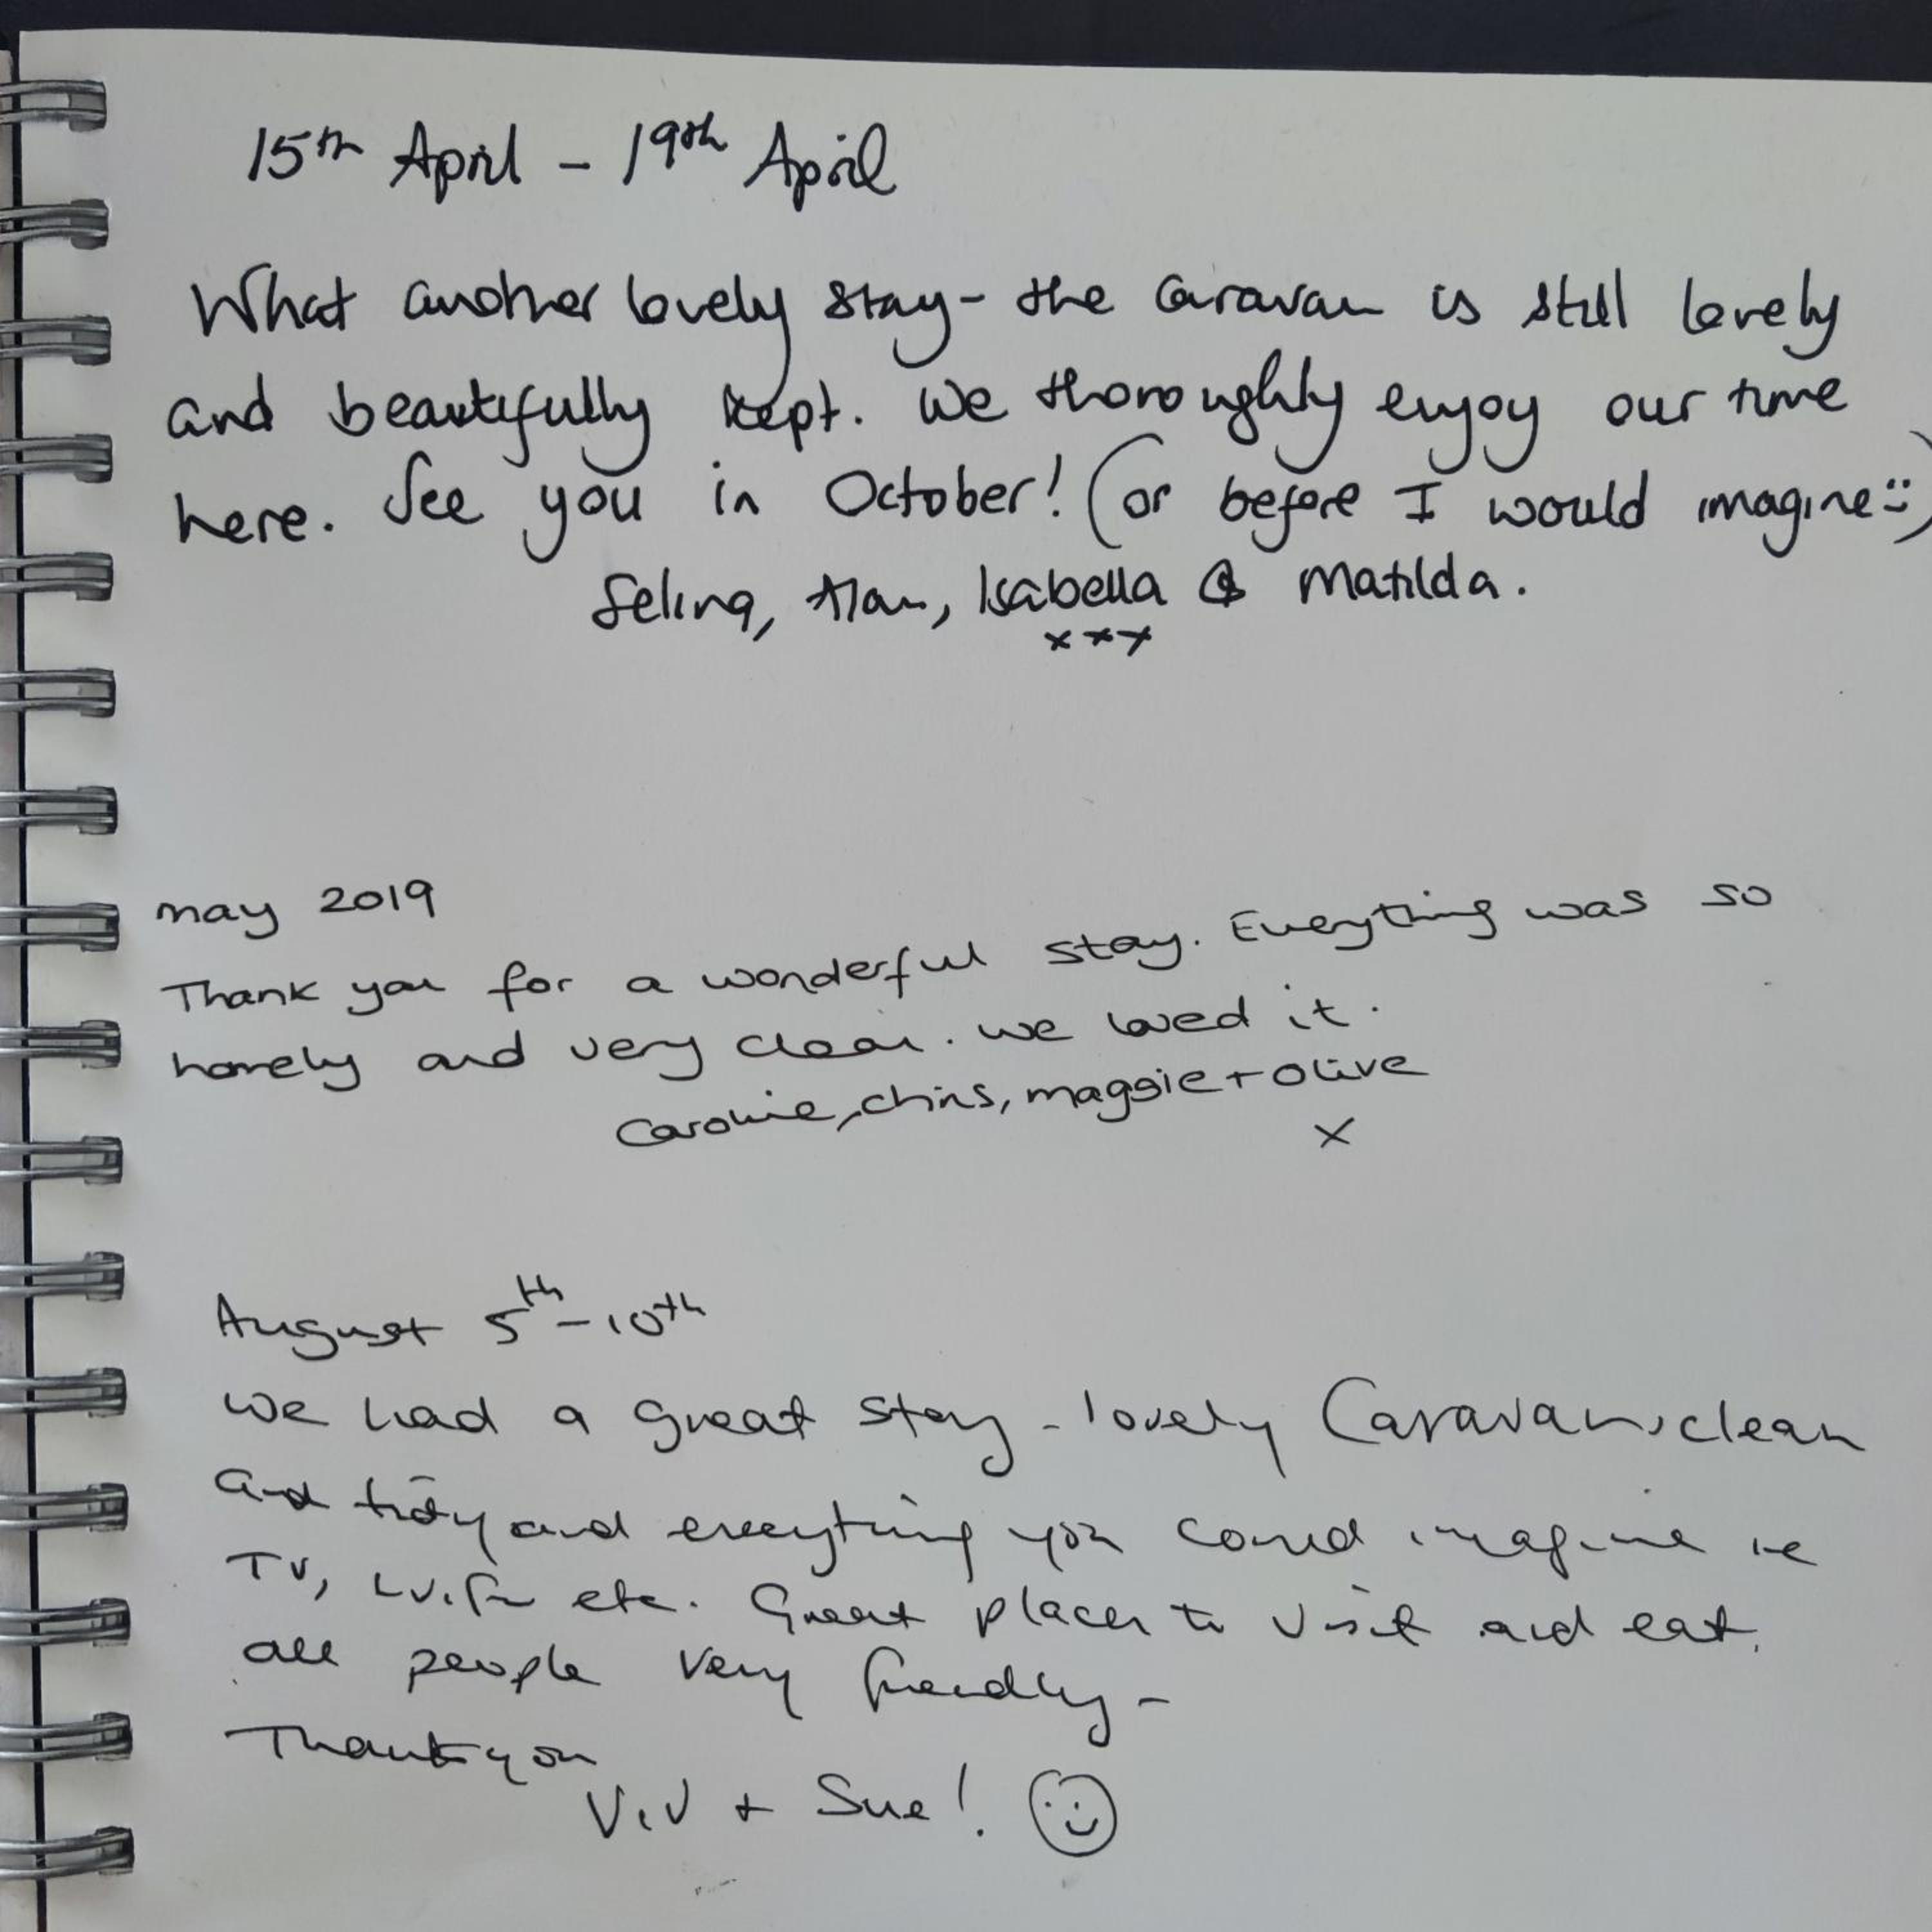 15th April - 19th April
What another lovely stay - the caravan is still lovely
and beautifully kept. We thoroughly enjoy our time
here. See you in October! (or before I would imagine :))
Selina, Alan, Isabella & Matilda.
xxx
may 2019
Thank you for a wonderful stay. Everything was so
homely and very clean. we loved it.
Caroline, chris, maggie + olive
x
August 5th - 10th
we had a great stay - lovely Caravan, clean
and tidy and everything you could imagine ie
TV, wifi etc. Great places to visit and eat.
all people very friendly -
Thankyou
Viv + Sue!